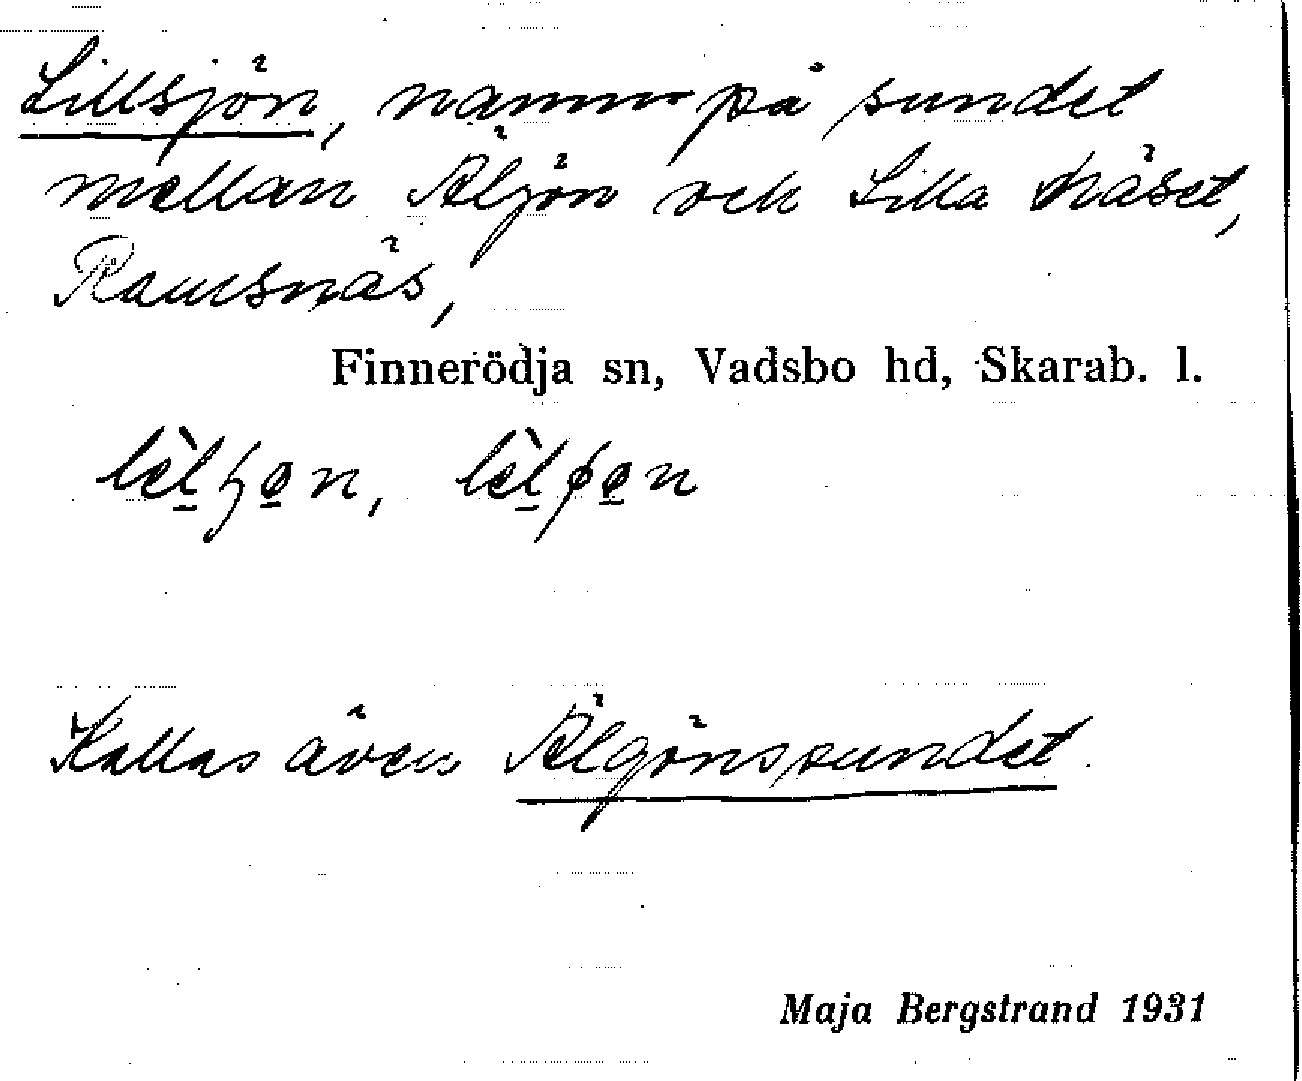 Lillsjön, namn på sundet
mellan Äljön och Lilla Näset,
Ramsnäs,
Finnerödja sn, Vadsbo hd, Skarab. l.
Kallas även Älgönssundet.
Maja Bergstrand 1931